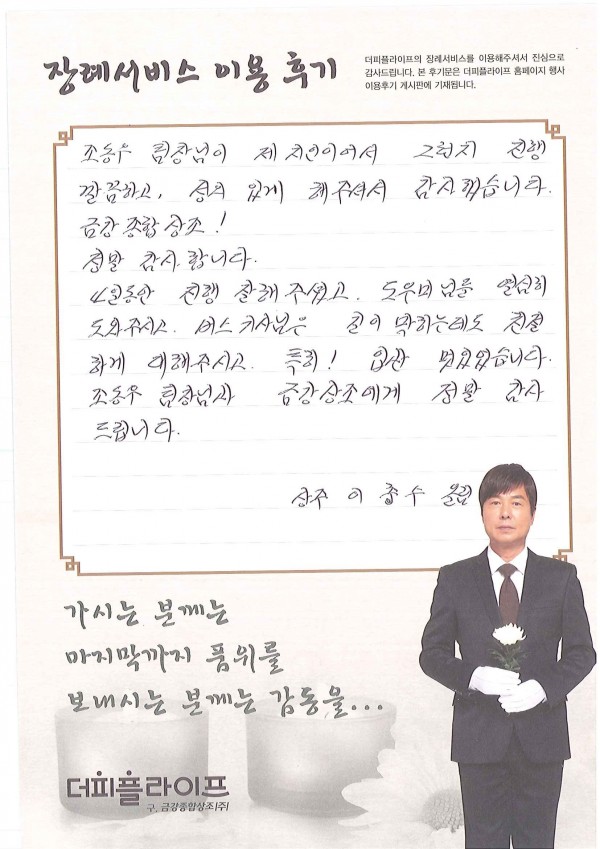 장례서비스 이용 후기
더피플라이프의 장례서비스를 이용해주셔서 진심으로
감사드립니다. 본 후기문은 더피플라이프 홈페이지 행사
이용후기 게시판에 기재됩니다.
조동우 팀장님이 제 지인이어서 그런지 진행
깔끔하고, 성의 있게 해주셔서 감사했습니다.
금강종합상조!
정말 감사합니다.
4일동안 진행 잘해주셨고, 도우미님들 열심히
도와주시고. 버스기사님은 길이 막히는데도 친절
하게 대해주시고. 특히! 입관 멋있었습니다.
조동우 팀장님과 금강상조에게 정말 감사
드립니다.
상주 이 수 올림
가시는 분께는
마지막까지 품위를
보내시는 분께는 감동을...
더피플라이프
구. 금강종합상조(주)